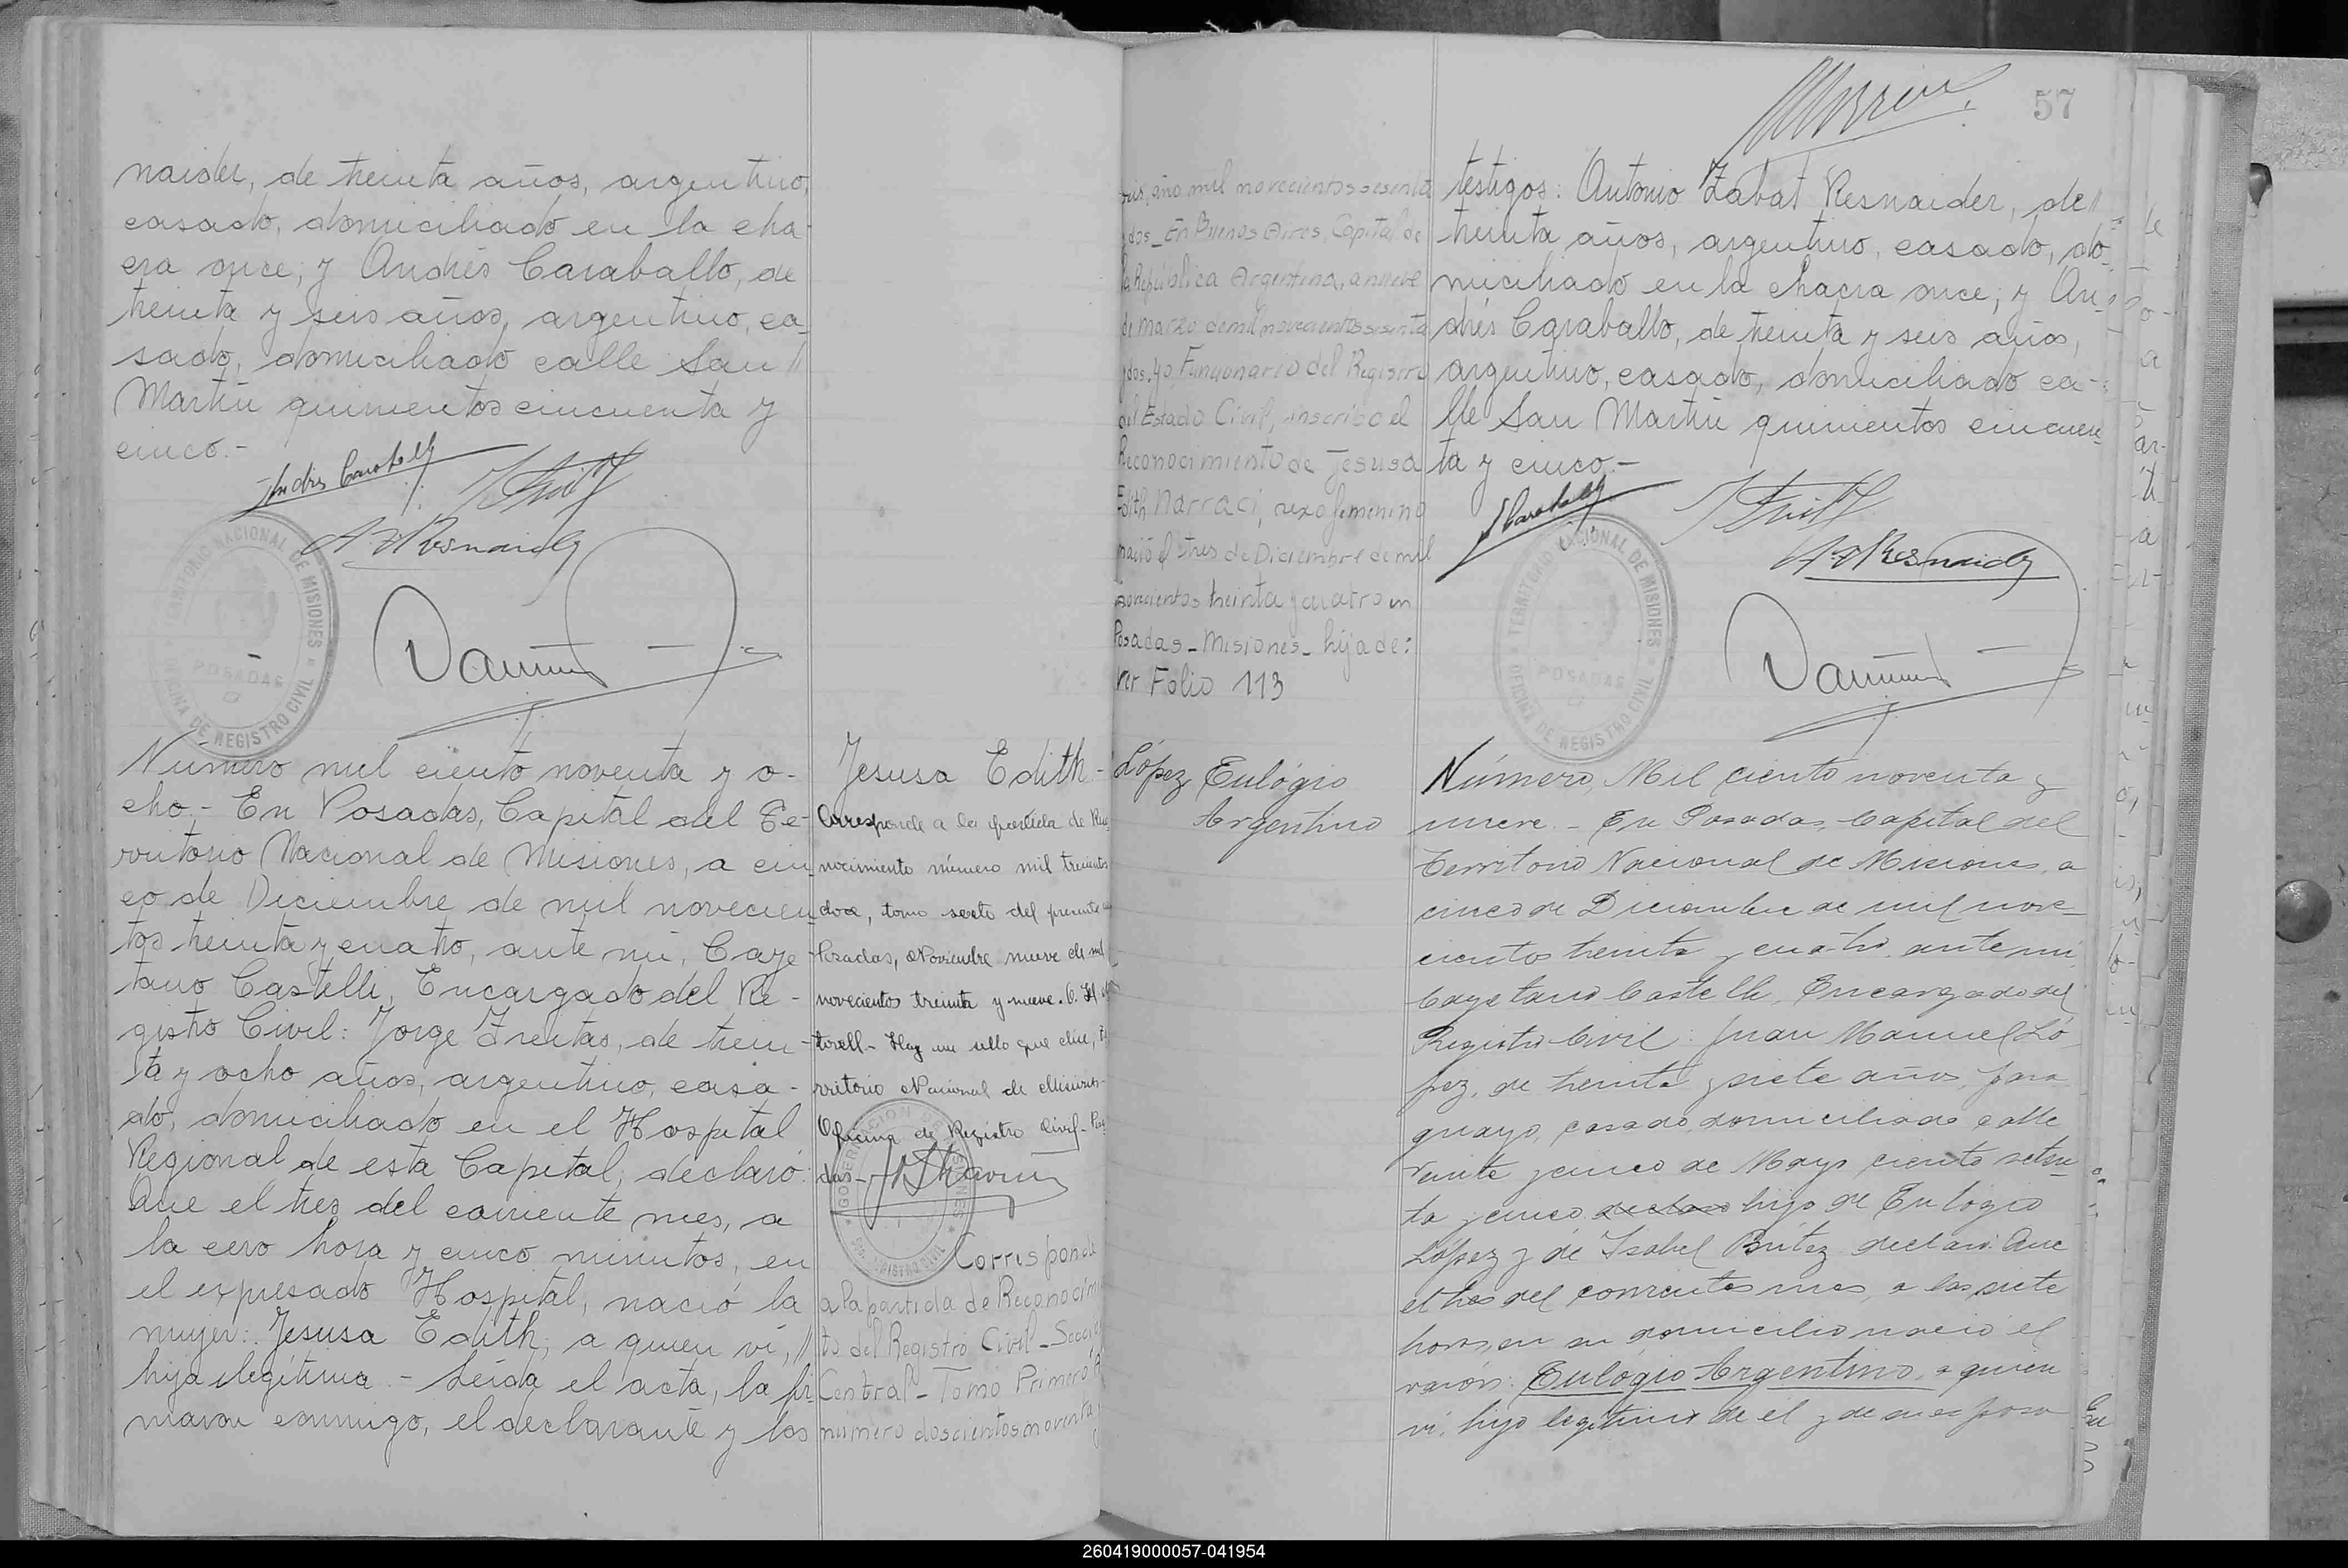 naider, de treinta años, argentino,
casado, domiciliado en la cha-
cra once; y Andrés Caraballo, de
treinta y seis años, argentino, ca-
sado, domiciliado calle San //
Martín quinientos cincuenta y
cinco.-
TERRITORIO NACIONAL DE MISIONES
POSADAS
OFICINA DE REGISTRO CIVIL
Número mil ciento noventa y o-
cho.- En Posadas, Capital del Te-
rritorio Nacional de Misiones, a cin-
co de Diciembre de mil novecien-
tos treinta y cuatro, ante mí, Caye-
tano Castelli, Encargado del Re-
gistro Civil: Jorge Freitas, de trein-
ta y ocho años, argentino, casa-
do, domiciliado en el Hospital
Regional de esta Capital, declaró:
Que el tres del corriente mes, a
la cero hora y cinco minutos, en
el expresado Hospital, nació la
mujer: Jesusa Edith, a quien ví, //
hija ilegítima.- Leída el acta, la fir-
maron conmigo, el declarante y los
Jesusa Edith.-
Corresponde a la partida de Reco-
nocimiento número mil trecientos
doce, tomo sexto del presente
Posadas, Noviembre nueve de mil
novecientos treinta y nueve.
Hay un sello que dice, Te-
rritorio Nacional de Misiones-
Oficina de Registro Civil- Posa-
das-
Corresponde
a la partida de Reconocimi
to del Registro Civil - Sección
Central - Tomo Primero
número doscientos noventa y
57
año mil novecientos sesenta
y dos_ En Buenos Aires, Capital de
la República Argentina, a nueve
de marzo de mil novecientos sesenta
y dos, yo Funcionario del Registro
del Estado Civil, inscribo el
Reconocimiento de Jesusa
Edith Narraci, sexo femenino
nació el tres de Diciembre de mil
novecientos treinta y cuatro en
Posadas - Misiones - hija de:
ver Folio 113
testigos: Antonio Zabat Resnaider, de //
treinta años, argentino, casado, do-
miciliado en la chacra once; y An-
drés Caraballo, de treinta y seis años,
argentino, casado, domiciliado ca-
lle San Martín quinientos cincuen-
ta y cinco.-
TERRITORIO NACIONAL DE MISIONES
POSADAS
OFICINA DE REGISTRO CIVIL
López Eulogio
Argentino
Número, Mil ciento noventa y
nueve.- En Posadas, Capital del
Territorio Nacional de Misiones, a
cinco de Diciembre de mil nove-
cientos treinta y cuatro, ante mí,
Cayetano Castelli, Encargado del
Registro Civil: Juan Manuel Ló-
pez, de treinta y siete años, para-
guayo, casado, domiciliado calle
veinte y cinco de Mayo ciento seten-
ta y cinco, hijo de Eulogio
López y de Isabel Brítez, declaró: Que
el tres del corriente mes, a las siete
horas, en su domicilio nació el
varón: Eulogio Argentino, a quien
ví, hijo legítimo de el y de su esposa
260419000057-041954